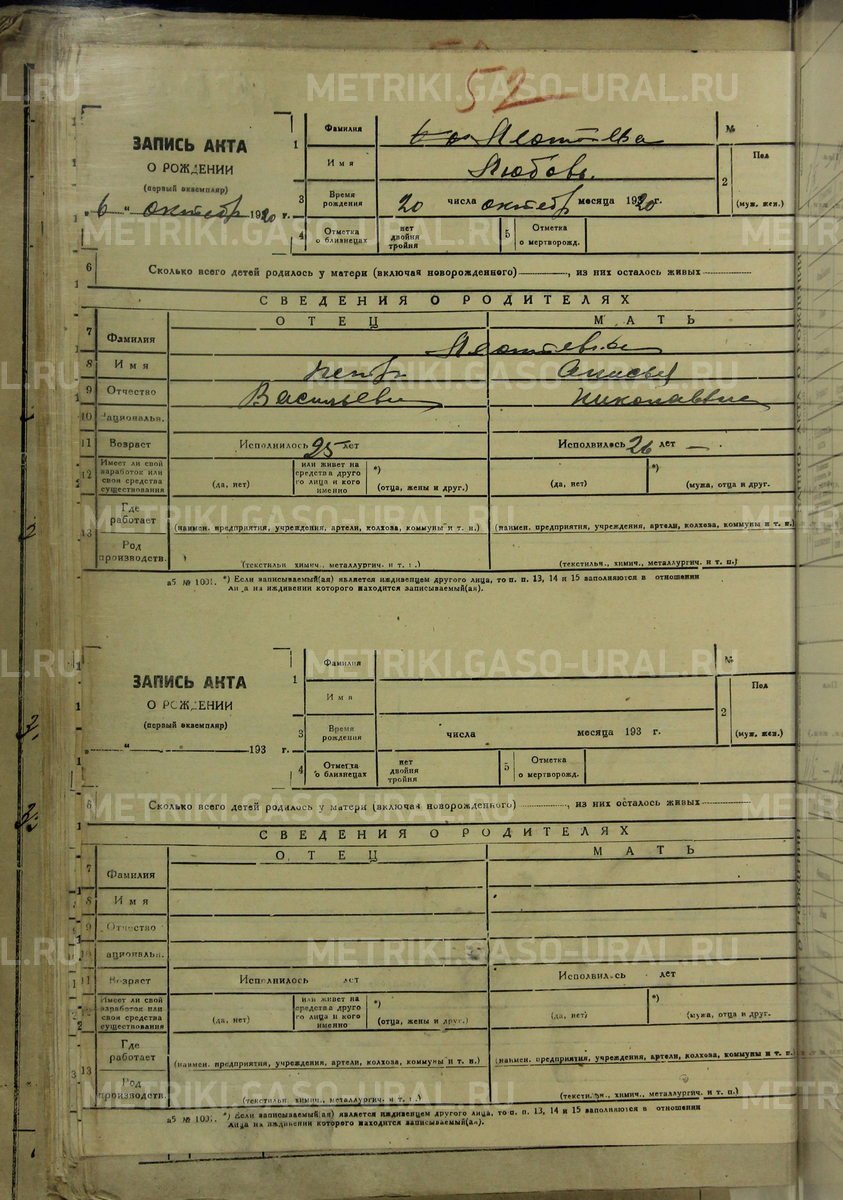 52
METRIKI.GASO-URAL.RU
ЗАПИСЬ АКТА
О РОЖДЕНИИ
(первый экземпляр)
„6“ октябр 1920 г.
1 Фамилия №
Имя Любовь.
2 Пол
(муж, жен.)
3 Время рождения 20 числа октябр месяца 1920 г.
4 Отметка о близнецах нет двойня тройня 5 Отметка о мертворожд.
6 Сколько всего детей родилось у матери (включая новорожденного) , из них осталось живых
СВЕДЕНИЯ О РОДИТЕЛЯХ
ОТЕЦ МАТЬ
7 Фамилия
8 Имя Петр Анисья
9 Отчество Васильевич Николаевна
10 Национальн.
11 Возраст Исполнилось 25 лет Исполнилось 26 лет
12 Имеет ли свой заработок или свои средства существования (да, нет) или живет на средства другого лица и кого именно *) (отца, жены и друг.) (да, нет) *) (мужа, отца и друг.
13 Где работает (наимен. предприятия, учреждения, артели, колхоза, коммуны и т. п.) (наимен. предприятия, учреждения, артели, колхоза, коммуны и т. п.)
Род производств. (текстильн. химич., металлургич. и т. п.) (текстильн., химич., металлургич. и т. п.)
*) Если записываемый(ая) является иждивенцем другого лица, то п. п. 13, 14 и 15 заполняются в отношении
лица на иждивении которого находится записываемый(ая).
METRIKI.GASO-URAL.RU
ЗАПИСЬ АКТА
О РОЖДЕНИИ
(первый экземпляр)
„ “ 193 г.
1 Фамилия №
Имя
2 Пол
(муж, жен.)
3 Время рождения числа месяца 193 г.
4 Отметка о близнецах нет двойня тройня 5 Отметка о мертворожд.
6 Сколько всего детей родилось у матери (включая новорожденного) , из них осталось живых
СВЕДЕНИЯ О РОДИТЕЛЯХ
ОТЕЦ МАТЬ
7 Фамилия
8 Имя
9 Отчество
10 Национальн.
11 Возраст Исполнилось лет Исполнилось лет
12 Имеет ли свой заработок или свои средства существования (да, нет) или живет на средства другого лица и кого именно *) (отца, жены и друг.) (да, нет) *) (мужа, отца и друг.
13 Где работает (наимен. предприятия, учреждения, артели, колхоза, коммуны и т. п.) (наимен. предприятия, учреждения, артели, колхоза, коммуны и т. п.)
Род производств. (текстильн. химич., металлургич. и т. п.) (текстильн. химич., металлургич. и т. п.)
*) Если записываемый(ая) является иждивенцем другого лица, то п. п. 13, 14 и 15 заполняются в отношении
лица на иждивении которого находится записываемый(ая).